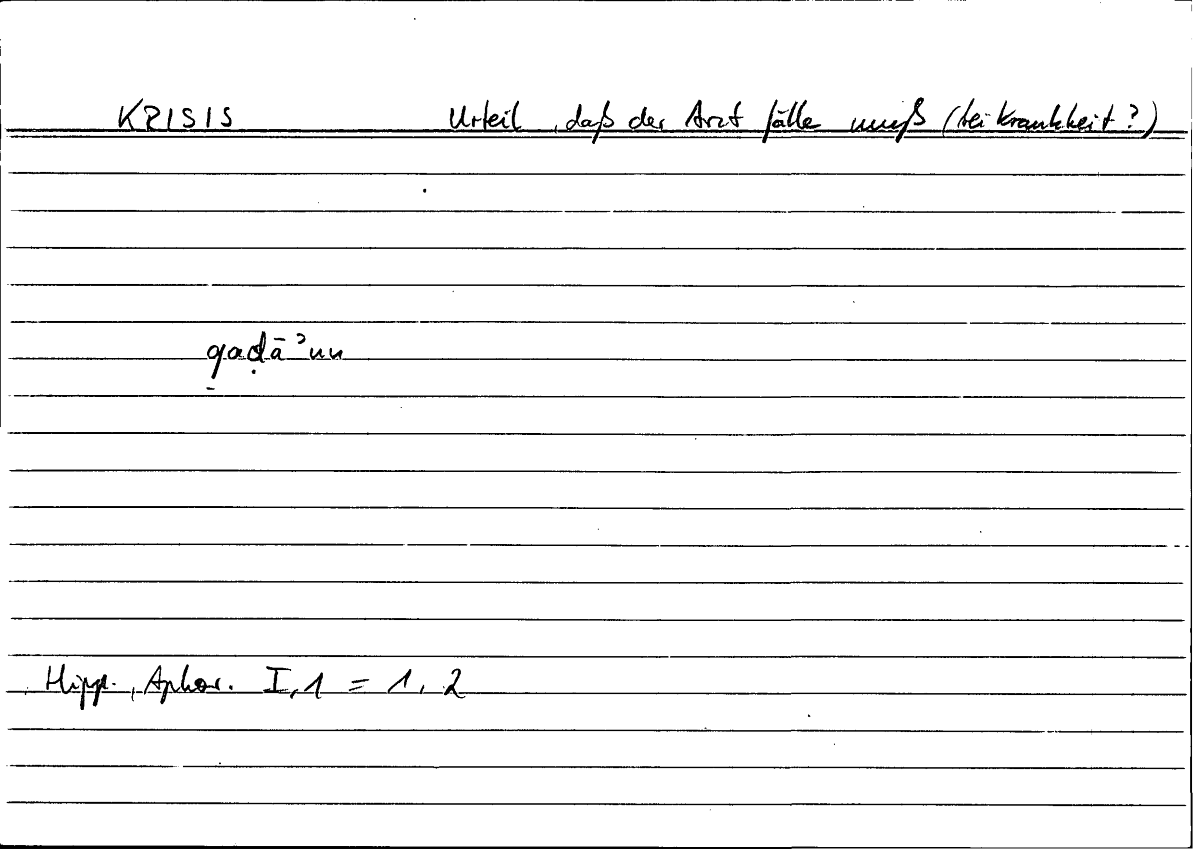 KRISIS Urteil, daß der Arzt fälle muß (bei Krankheit?)
qaḍāʾun
Hipp., Aphor. I,1 = 1, 2